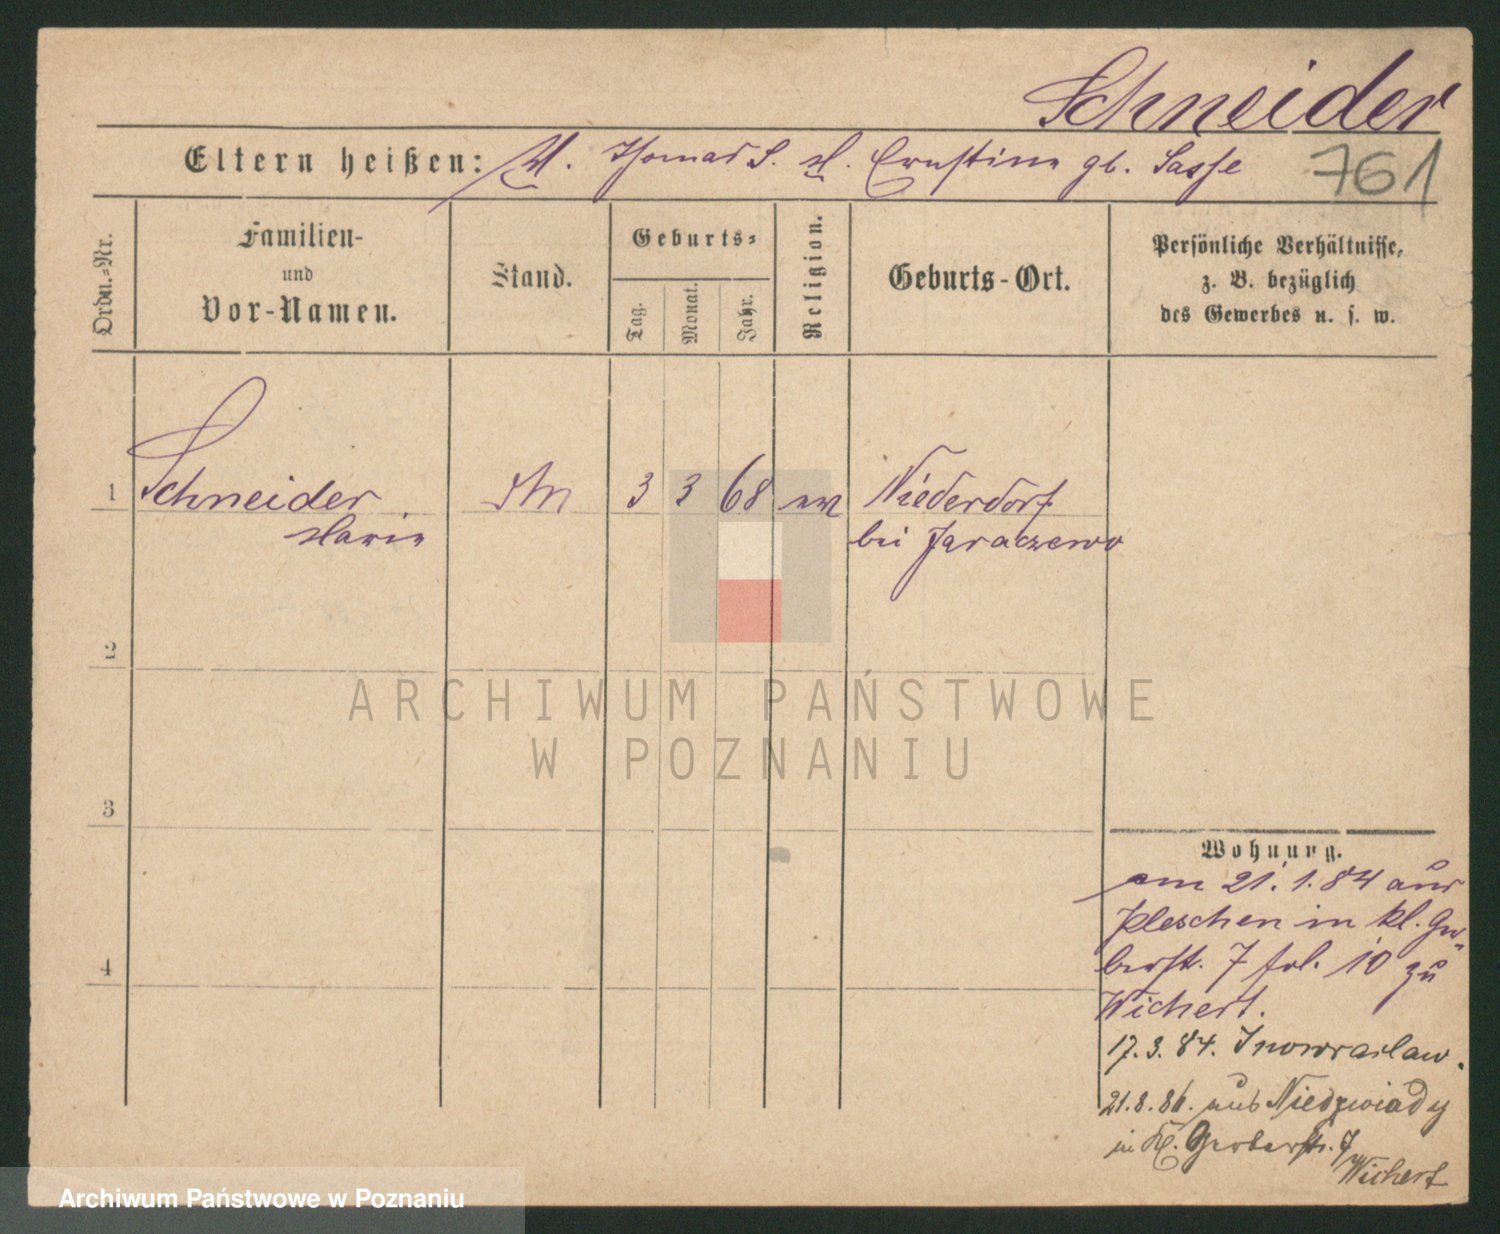 Schneider
Eltern heißen: V. Thomas S. M. Ernstine gb. Sasse
761
Ordn.-Nr.
Familien-
und
Vor-Namen.
Stand.
Geburts-
Tag.
Monat.
Jahr.
Religion.
Geburts-Ort.
Persönliche Verhältnisse,
z. B. bezüglich
des Gewerbes u. s. w.
1 Schneider 3 3 68 Niederdorf
Marie bei Jaraczewo
2
3
4
Wohnung.
am 21.1.84 aus
Pleschen in kl. Ger-
berst. 7 10 zu
Wichert.
17.3.84. Inowraslaw.
21.8.86. aus Niedzwiady
in Kl. Gerberstr. 7
Wichert
ARCHIWUM PAŃSTWOWE
W POZNANIU
Archiwum Państwowe w Poznaniu